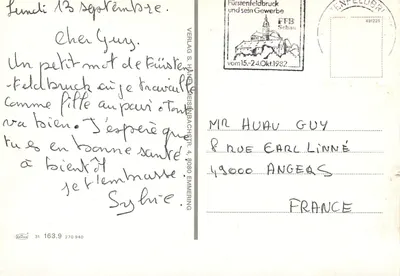 Lundi 13 septembre.
Cher Guy.
Un petit mot de Fürsten-
feldbruck où je travaille
comme fille au pair. Tout
va bien. J'espère que
tu es en bonne santé.
à bientôt
je t'embrasse.
Sylvie.
21 163.9
Fürstenfeldbruck
und sein Gewerbe
FFB
vom 15.-24.Okt.1982
MR HUAU GUY
8 RUE EARL LINNÉ
49000 ANGERS
FRANCE